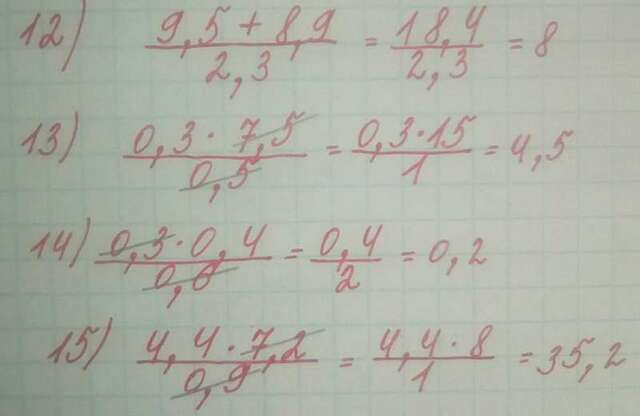 12) (9,5 + 8,9)/2,3 = 18,4/2,3 = 8
13) (0,3 · 7,5)/0,5 = (0,3 · 15)/1 = 4,5
14) (0,3 · 0,4)/0,6 = 0,4/2 = 0,2
15) (4,4 · 7,2)/0,9 = (4,4 · 8)/1 = 35,2